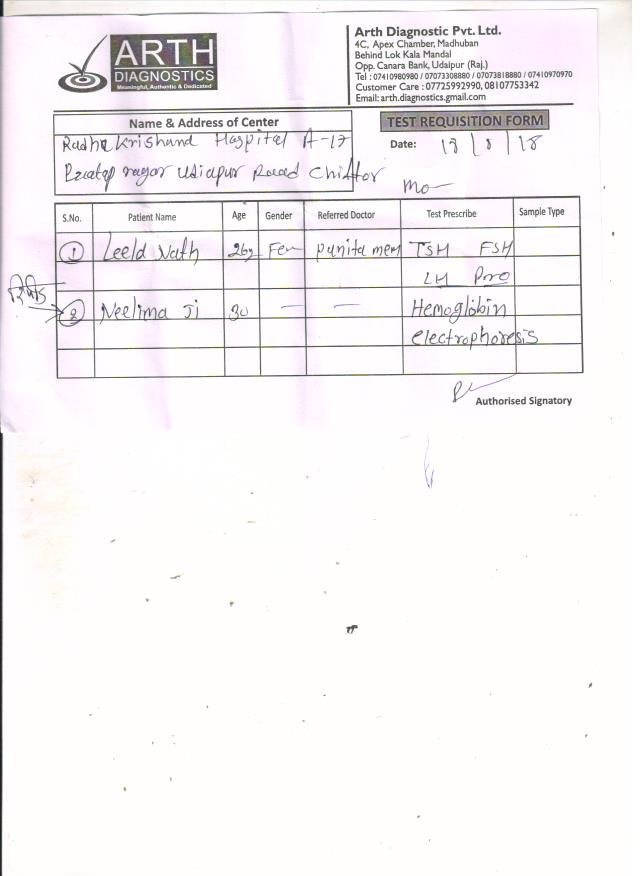 ARTH
DIAGNOSTICS
Meaningful, Authentic & Dedicated
Arth Diagnostic Pvt. Ltd.
4C, Apex Chamber, Madhuban
Behind Lok Kala Mandal
Opp. Canara Bank, Udaipur (Raj.)
Tel : 07410980980 / 07073308880 / 07073818880 / 07410970970
Customer Care : 07725992990, 08107753342
Email: arth.diagnostics.gmail.com
Name & Address of Center
TEST REQUISITION FORM
Radha Krishana Hospital A-17
Date:
Pratap nagar Udiapur Road Chittor
Mo
S.No. Patient Name Age Gender Referred Doctor Test Prescribe Sample Type
1 Leela Nath 26y Fem punita mem TSH FSH
LH Pro
2 Neelima Ji 30 — — Hemoglobin
electrophoresis
Authorised Signatory